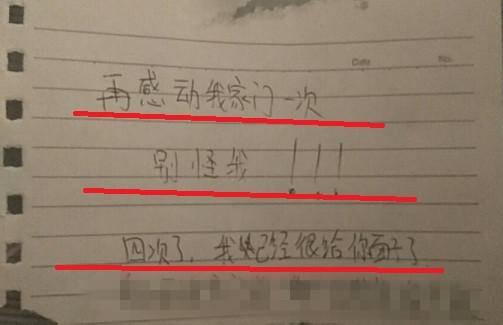 Date No.
再感动我家门一次
别怪我!!!
四次了,我已经很给你面子了